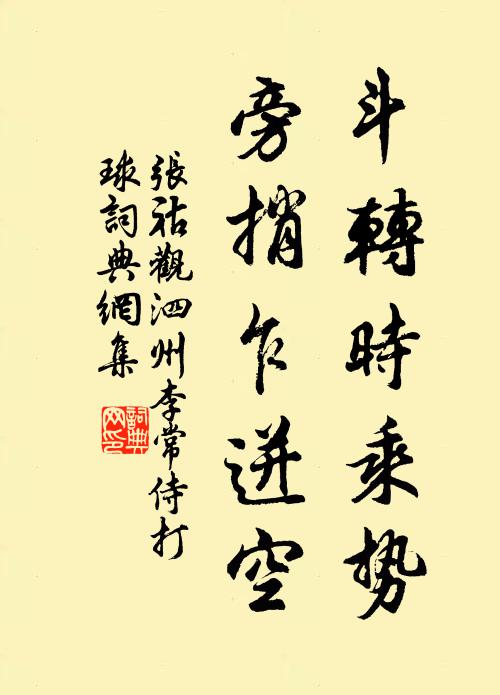 斗轉時乘勢
旁捎乍迸空
張祜觀泗州李常侍打
球詞典網集
詞典
网印